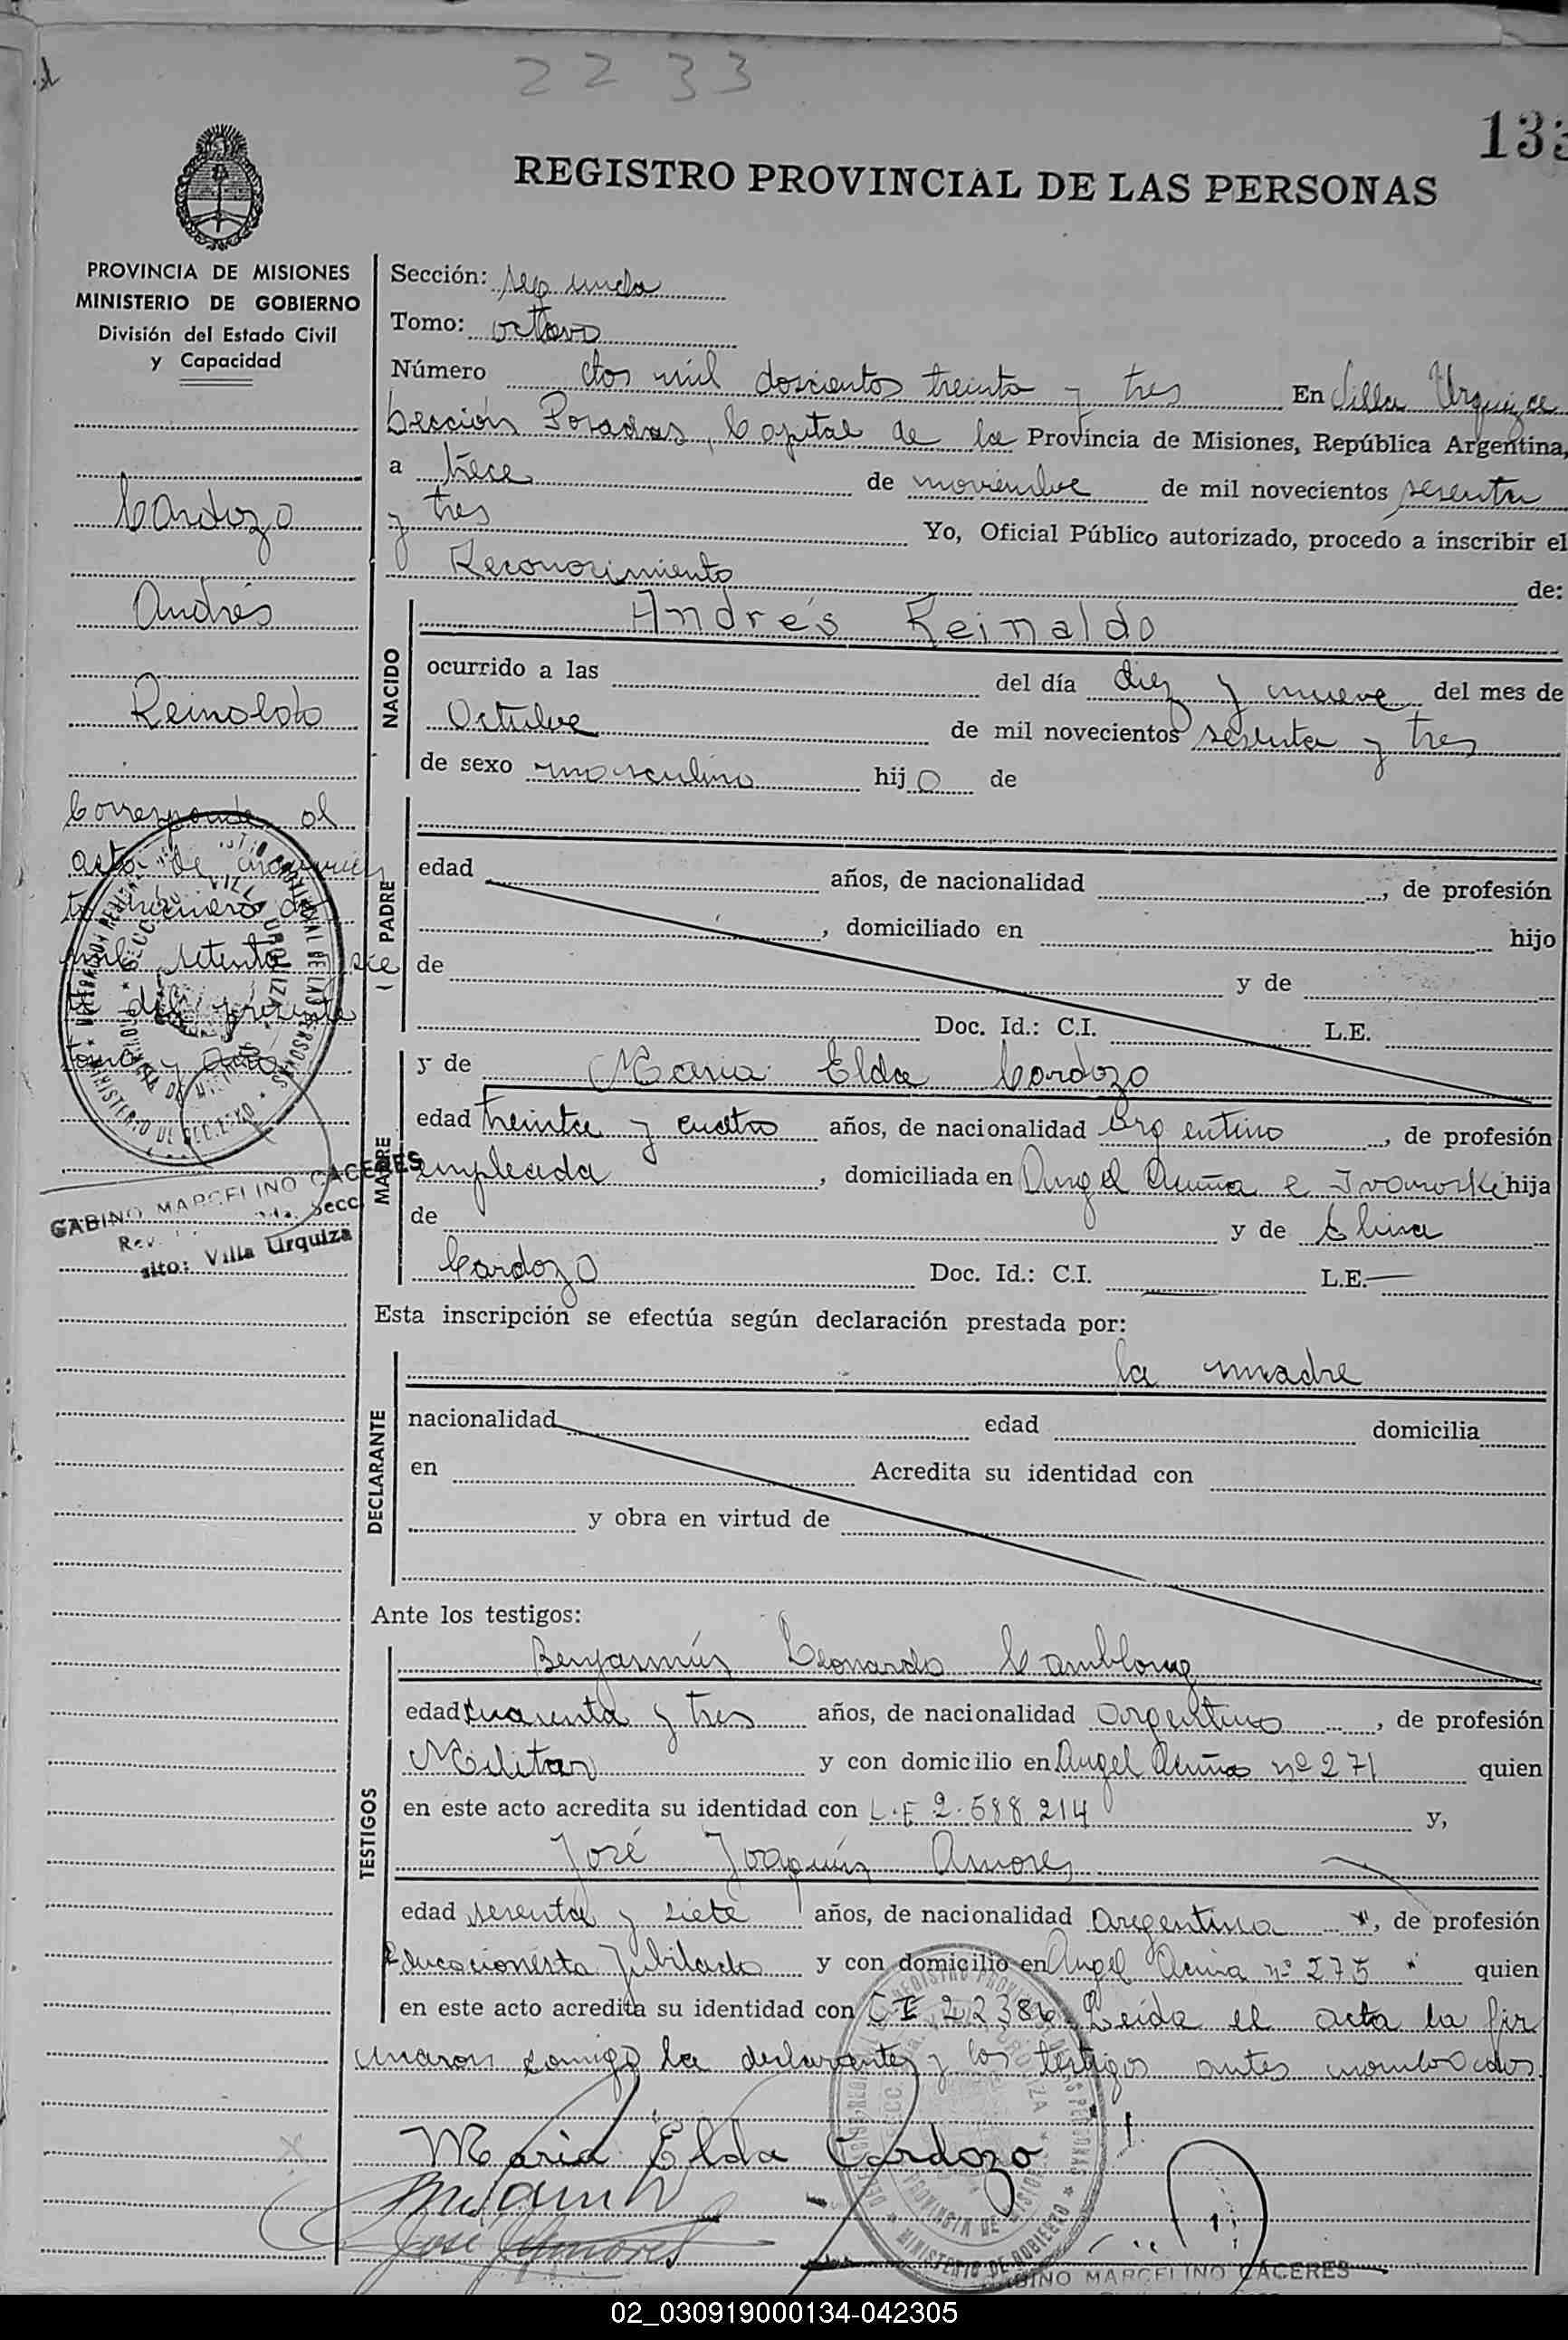 2233
133
REGISTRO PROVINCIAL DE LAS PERSONAS
PROVINCIA DE MISIONES
MINISTERIO DE GOBIERNO
División del Estado Civil
y Capacidad
Cardozo
Andrés
Reinaldo
Corresponde al
acta de
número dos
mil setenta y sie
te del presente
tomo y año
GABINO MARCELINO CACERES
Secc.
sito: Villa Urquiza
Sección: segunda
Tomo: octavo
Número dos mil doscientos treinta y tres En Villa Urquiza
Sección Posadas, Capital de la Provincia de Misiones, República Argentina,
a trece de noviembre de mil novecientos sesenta
y tres Yo, Oficial Público autorizado, procedo a inscribir el
Reconocimiento de:
NACIDO
Andrés Reinaldo
ocurrido a las del día diez y nueve del mes de
Octubre de mil novecientos sesenta y tres
de sexo masculino hijo de
PADRE
edad años, de nacionalidad , de profesión
, domiciliado en hijo
de y de
Doc. Id.: C.I. L.E.
MADRE
y de Maria Elda Cardozo
edad treinta y cuatro años, de nacionalidad Argentino , de profesión
empleada , domiciliada en Angel Acuña e Ivanoski hija
de y de Elina
Cardozo Doc. Id.: C.I. L.E.
Esta inscripción se efectúa según declaración prestada por:
DECLARANTE
la madre
nacionalidad edad domicilia
en Acredita su identidad con
y obra en virtud de
Ante los testigos:
TESTIGOS
Benjamín Leonardo Camblong
edad cuarenta y tres años, de nacionalidad argentino , de profesión
Militar y con domicilio en Angel Acuña nº 271 quien
en este acto acredita su identidad con L.E 2.588.214 y,
José Joaquín Amores
edad sesenta y siete años, de nacionalidad argentina , de profesión
Educacionista Jubilado y con domicilio en Angel Acuña nº 275 quien
en este acto acredita su identidad con C I 22386 Leída el acta la fir
maron comigo la declarante y los testigos antes nombrados
Maria Elda Cardozo
José Amores
GABINO MARCELINO CACERES
02_030919000134-042305